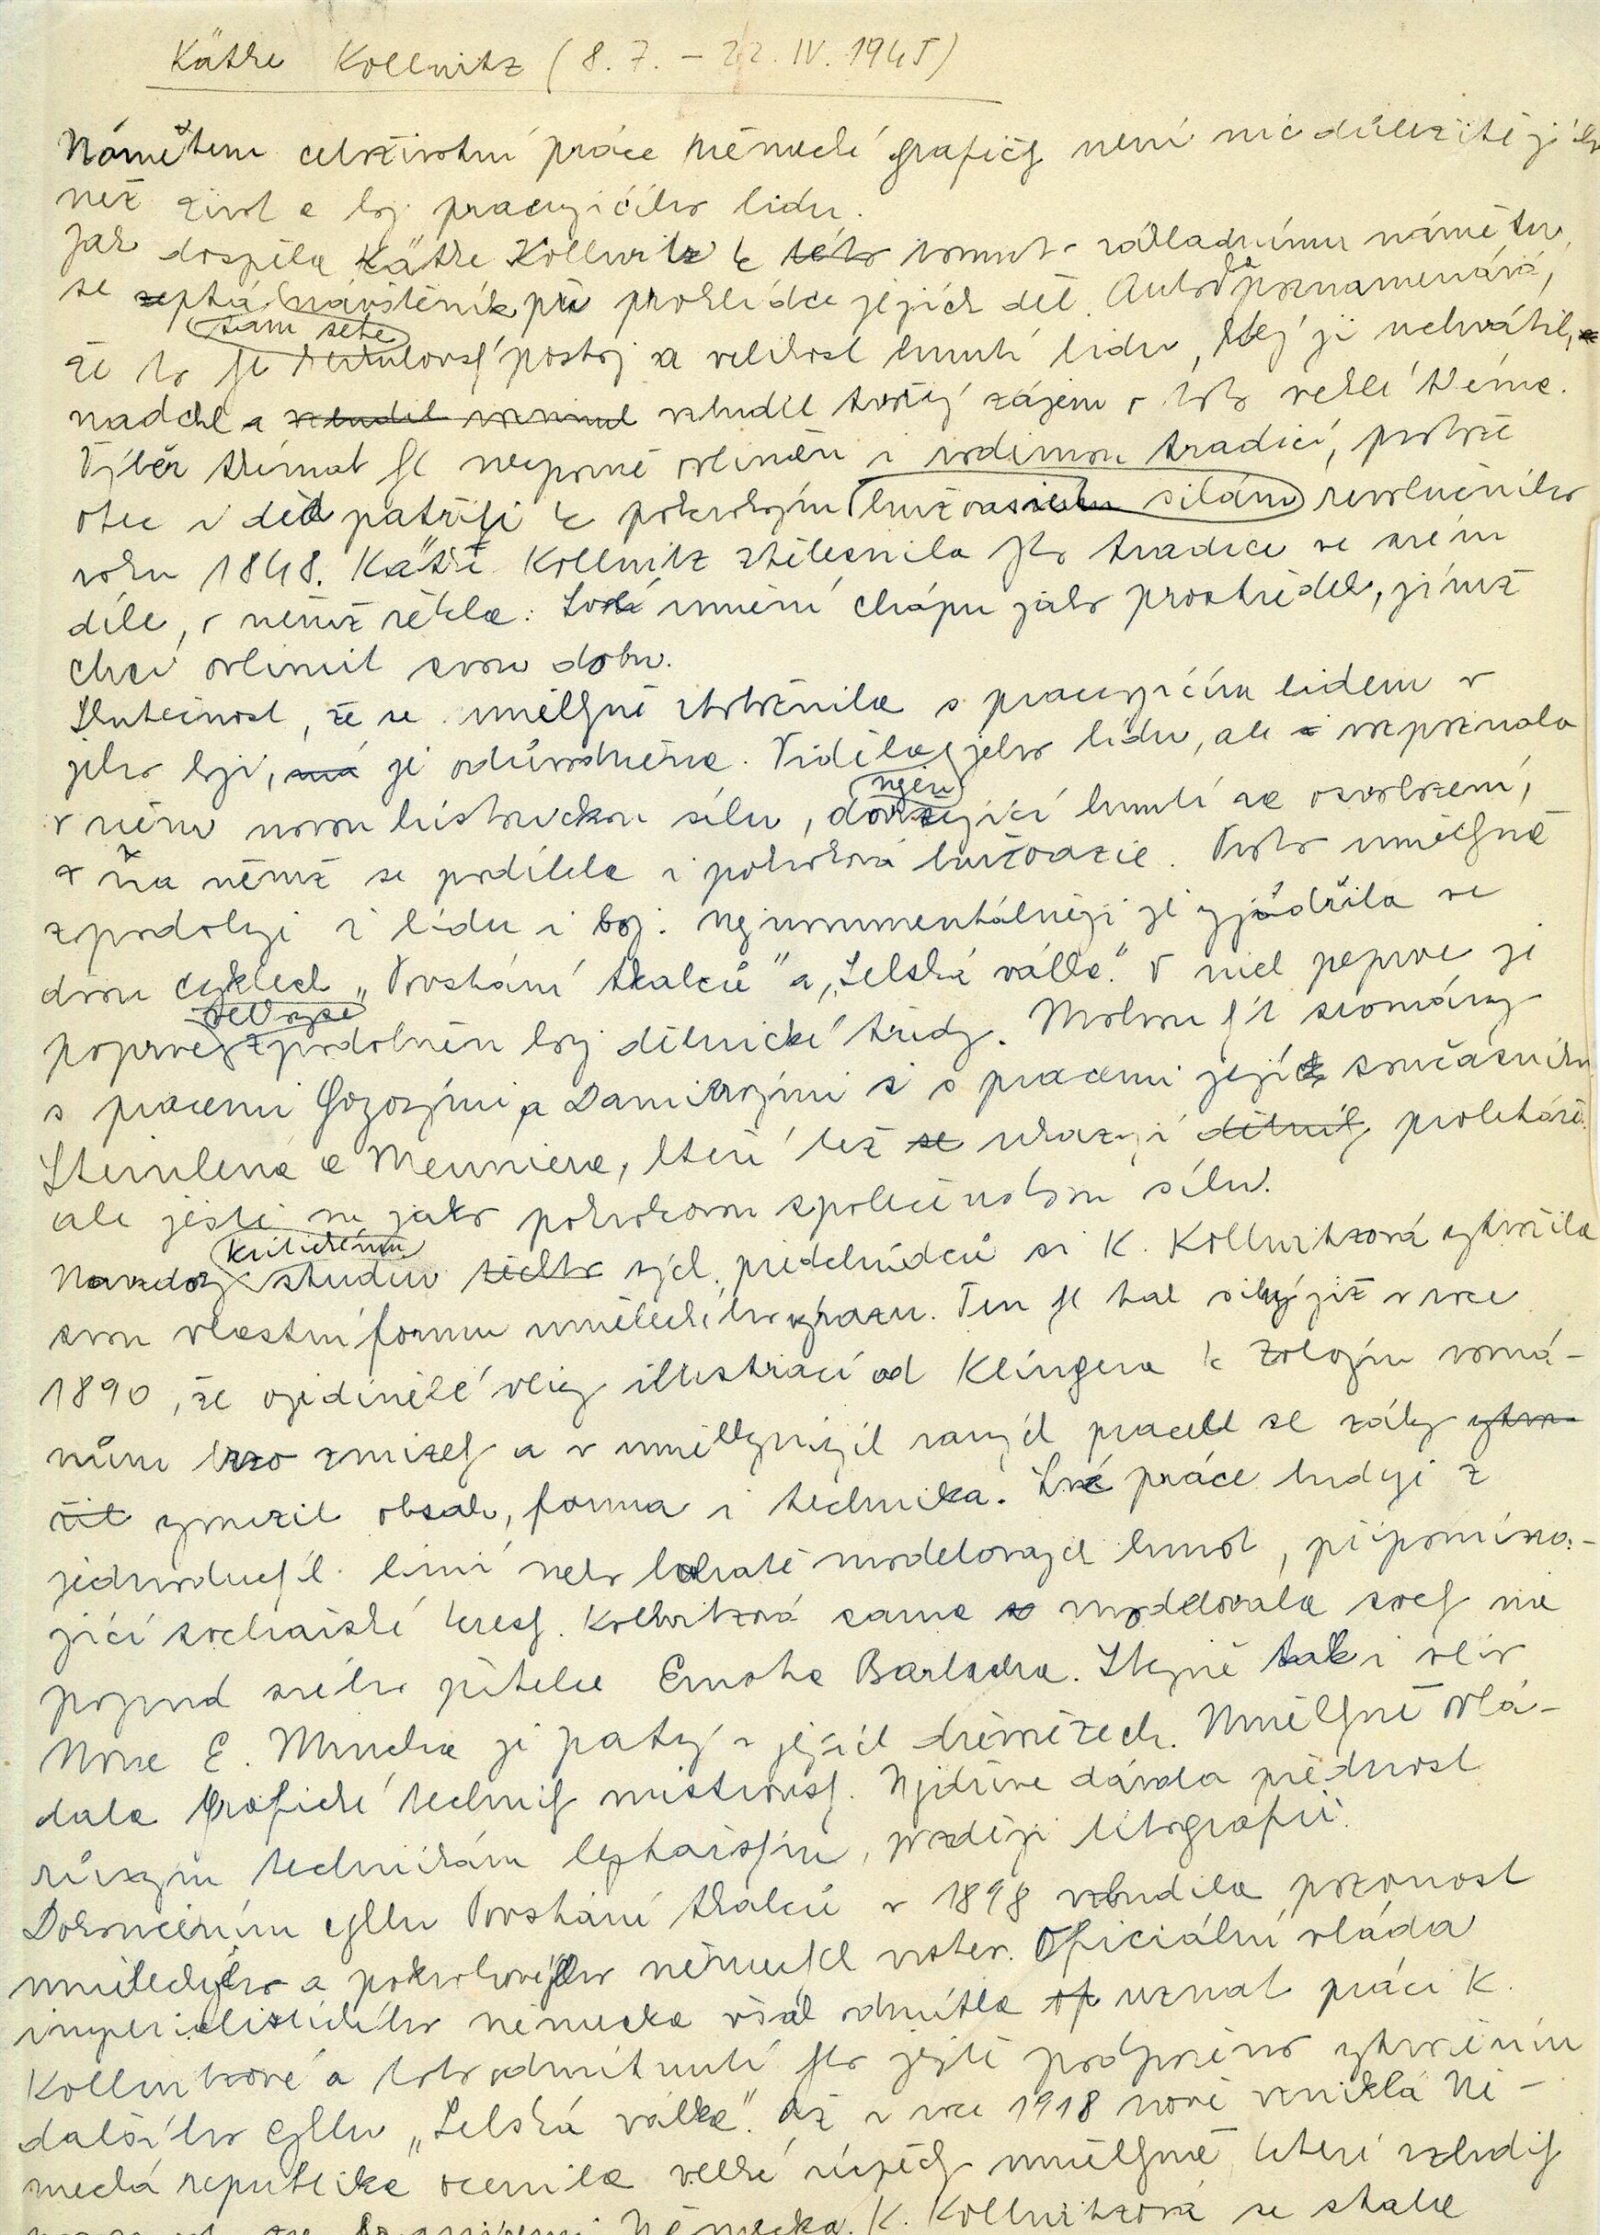 Käthe Kollwitz (8.7. – 22.IV.1945)
Námětem celoživotní práce německé grafičky není nic důležitějšího
než život a boj pracujícího lidu.
Jak dospěla Käthe Kollwitz k této tomuto základnímu námětu,
se ptá návštěník při prohlídce jejích děl. Autorka poznamenává,
sám sebe
že to byl postoj a velikost hnutí lidu, který ji uchvátil,
nadchl a vzbudil vzbudil tvořivý zájem o toto velké téma.
Výběr témat byl nesporně ovlivněn i rodinnou tradicí, protože
otec i děd patřili k pokrokovým buržoasním silám revolučního
roku 1848. Käthe Kollwitz ztělesnila tuto tradici ve svém
díle, o němž řekla: Své umění chápu jako prostředek, jímž
chci ovlivnit svou dobu.
Skutečnost, že se umělkyně ztotožnila s pracujícím lidem v
jeho boji, má je odůvodněna. Viděla jeho bídu, ale i rozpoznala
v něm novou historickou sílu, hnutí za osvobození,
nejen
v na němž se podílela i pokroková buržoazie. Proto umělkyně
zpodobuje i bídu i boj. Nejmonumentálněji je vyjádřila ve
dvou cyklech „Povstání tkalců" a „Selská válka". V nich poprve je
poprvé zpodobněn boj dělnické třídy. Mohou být srovnány
s pracemi Goyovými a Daumierovými i s pracemi jejích současníků
Steinlena a Meuniera, kteří též se ukazují dělníky proletáře,
ale ještě ne jako pokrokovou společenskou sílu.
kritickému
Navzdory studiu těchto svých předchůdců si K. Kollwitzová vytvořila
svou vlastní formu uměleckého výrazu. Ten byl tak silný již v roce
1890, že ojedinělé vlivy illustrací od Klingera k Zolovým romá-
nům brzo zmizely a v umělkyniných raných pracech se záhy vytvo-
řil vyhranil obsah, forma i technika. Své práce buduje z
jednoduchých linií nebo bohatě modelovaných hmot, připomína-
jící sochařské kresby. Kollwitzová sama se modelovala sochy na
popud svého přítele Ernsta Barlacha. Stejně tak i vliv
Nora E. Muncha je patrný v jejích dřevořezech. Umělkyně ovlá-
dala grafické techniky mistrovsky. Nejdříve dávala přednost
různým technikám leptařským, později litografii.
Dokončením cyklu Povstání tkalců v 1898 vzbudila pozornost
uměleckého a pokrokového německého Oficiální vláda
imperialistického německa však odmítla uznat práci K.
Kollwitzové a toto odmítnutí bylo ještě podpořeno vytvořením
dalšího cyklu „Selská válka". Až v roce 1918 nově vzniklá Ně-
mecká republika ocenila velké úspěchy umělkyně, které vzbudily
Německa. K. Kollwitzová se stala